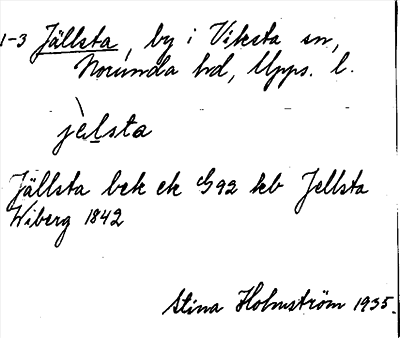 1-3 Jällsta, by i Viksta sn,
Norunda hd, Upps. l.
jèlsta
Jällsta bek ek G92 kb Jellsta
Wiberg 1842
Stina Holmström 1935.